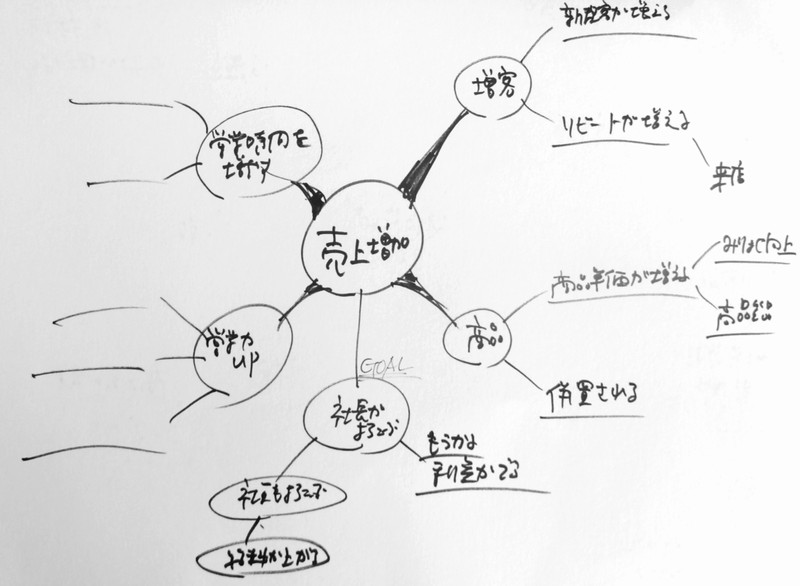 新規客が増える
増客
リピートが増える
来店
営業時間を
増やす
売上増加
商品単価が増える
商品
営業力
UP
GOAL
社長が
よろこぶ
もうかる
利益がでる
社員もよろこぶ
給料が上がる